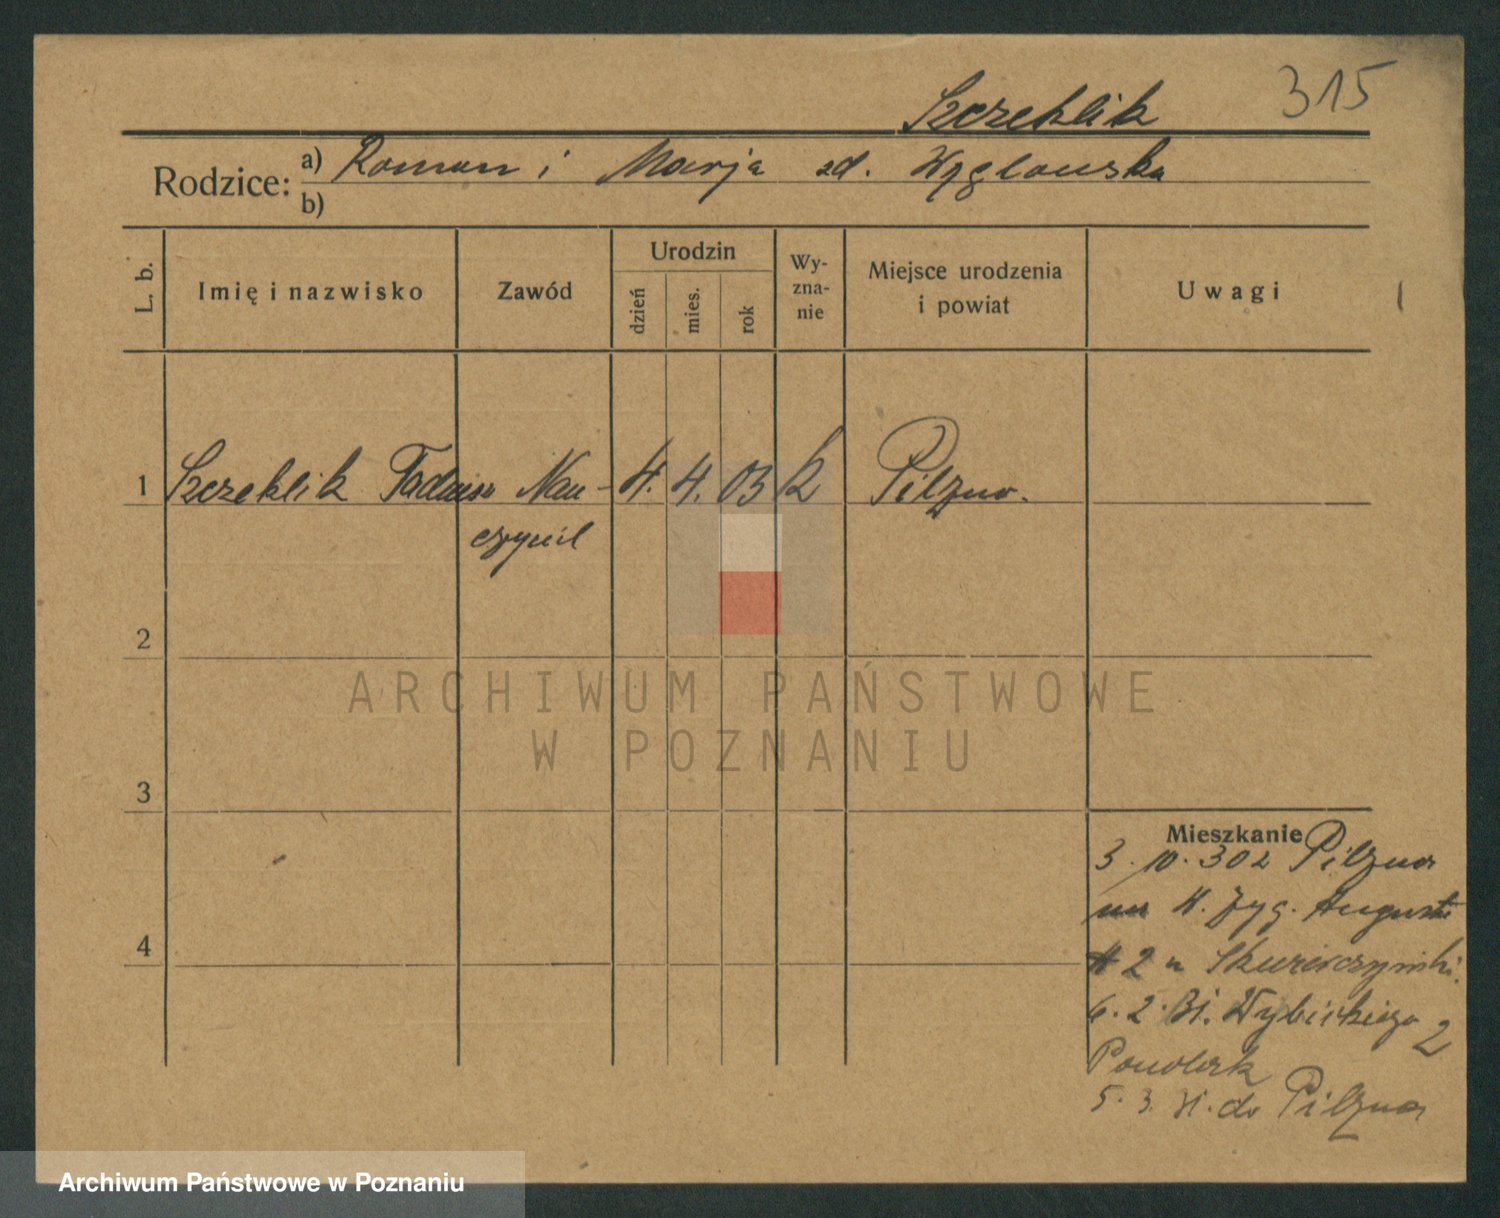 315
Szczeklik
Rodzice: a) Roman i Marja zd. Węglowska
b)
L. b.
Imię i nazwisko
Zawód
Urodzin
dzień
mies.
rok
Wy-
zna-
nie
Miejsce urodzenia
i powiat
Uwagi
1 Szczeklik Tadeusz Nau- 4. 4. 03 k Pilzno.
czyciel
2
ARCHIWUM PAŃSTWOWE
W POZNANIU
3
Mieszkanie
3. 10. 30 z Pilzna
na H. Zyg. Augusta
2 u
6. 2. 31. Wybickiego 2
5. 3. 31. do Pilzna
4
Archiwum Państwowe w Poznaniu